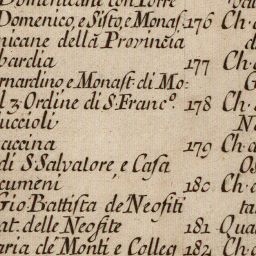 Domenicane con Torre
Domenico, e Sisto, e Monas: 176 Ch.
nicane della Provincia d
bardia 177 Ch.
rnardino e Monast: di Mo: G
l 3º Ordine di S. Franc.º 178 Ch.
uccioli No
uccina 179 Ch. d
di S. Salvatore, e Casa Os
cumeni 180 Ch. e
Gio Battista de Neofiti ta
at. delle Neofite 181 Qua
aria de Monti e Colleg 182 Ch. e